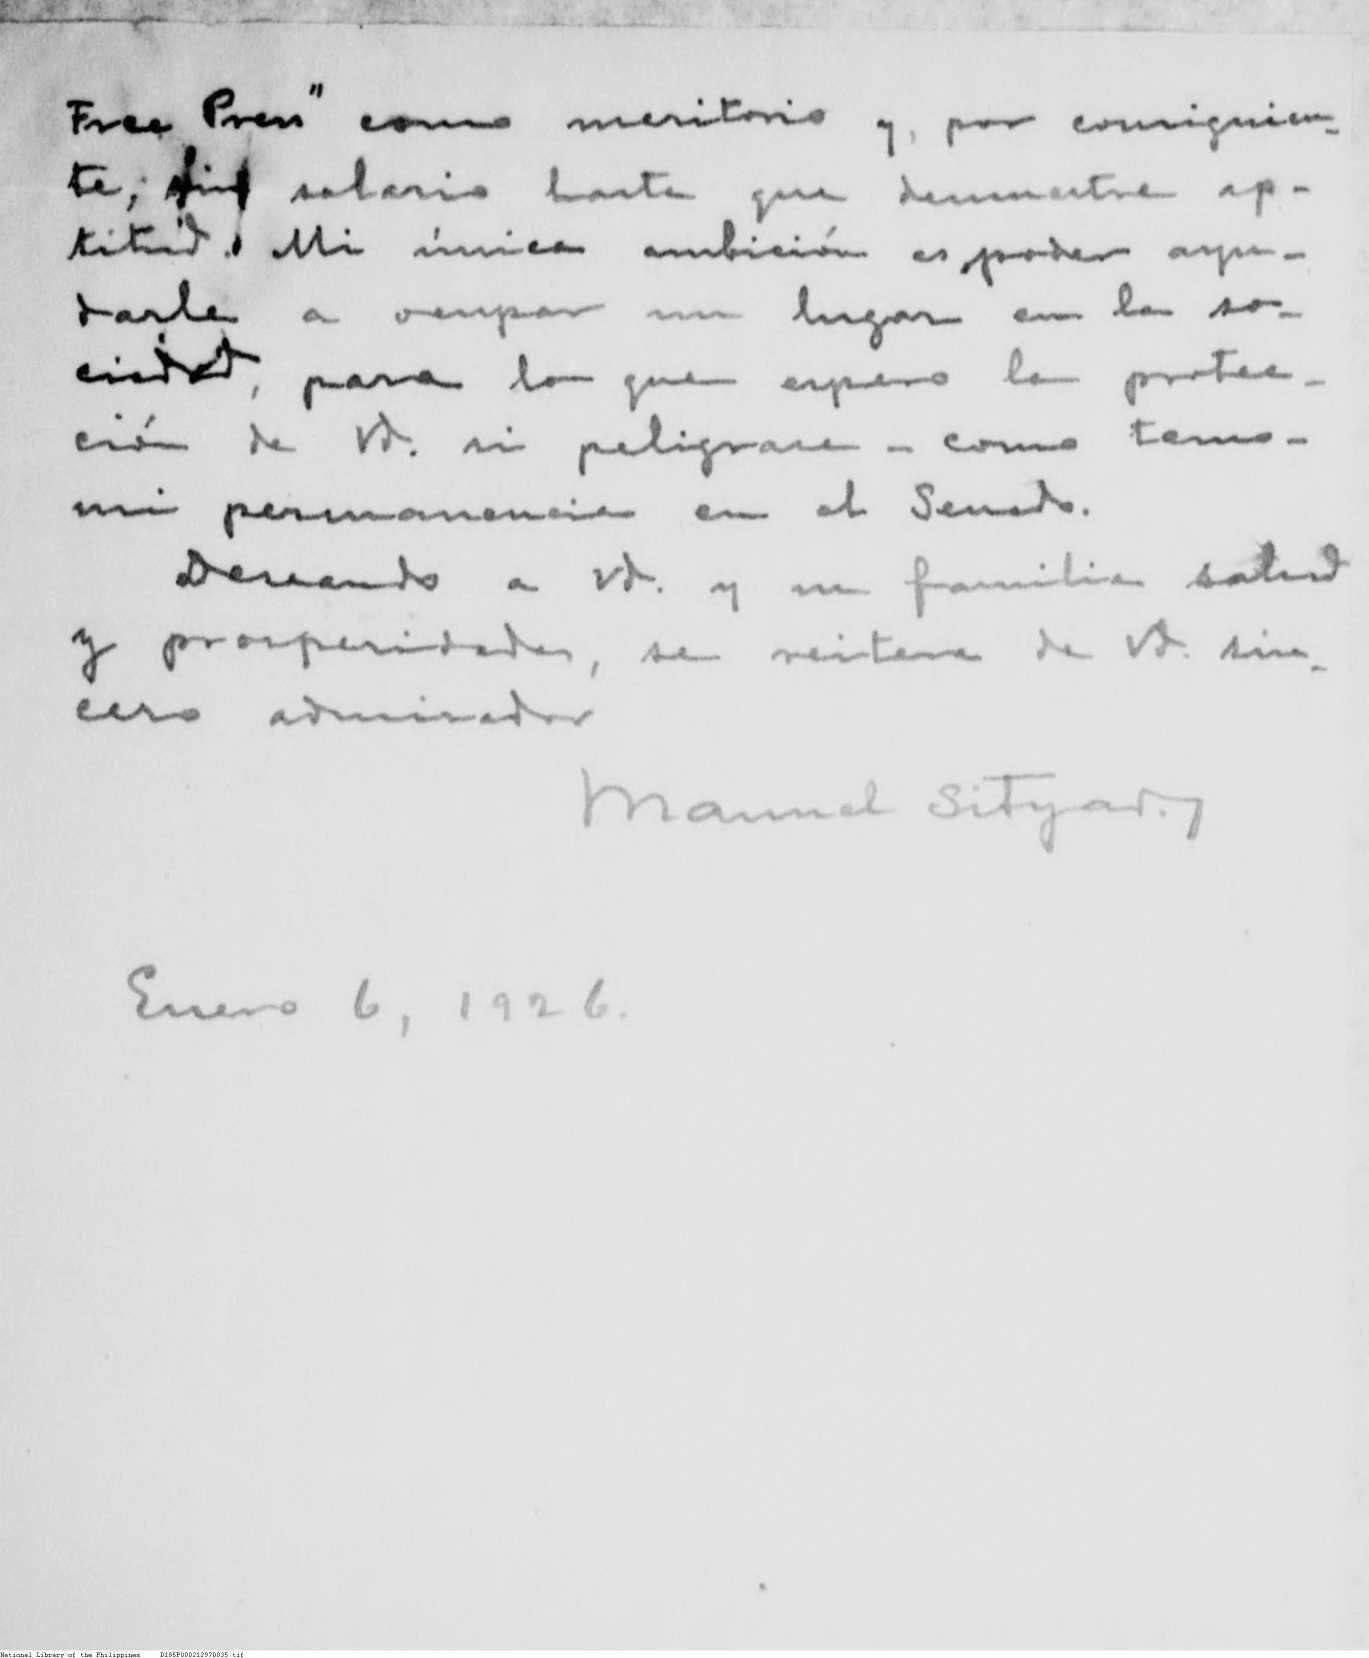 Free Press" como meritorio y, por consiguien-
te, sin salario hasta que demuestre ap-
titud. Mi única ambición es poder ayu-
darle a ocupar un lugar en la so-
ciedad, para lo que espero la protec-
ción de Vd. si peligrase - como temo -
mi permanencia en el Senado.
Deseando a Vd. y su familia salud
y prosperidades, se reitera de Vd. sin-
cero admirador
Manuel Sityar.
Enero 6, 1926.
National Library of the Philippines D185P000212970035.tif